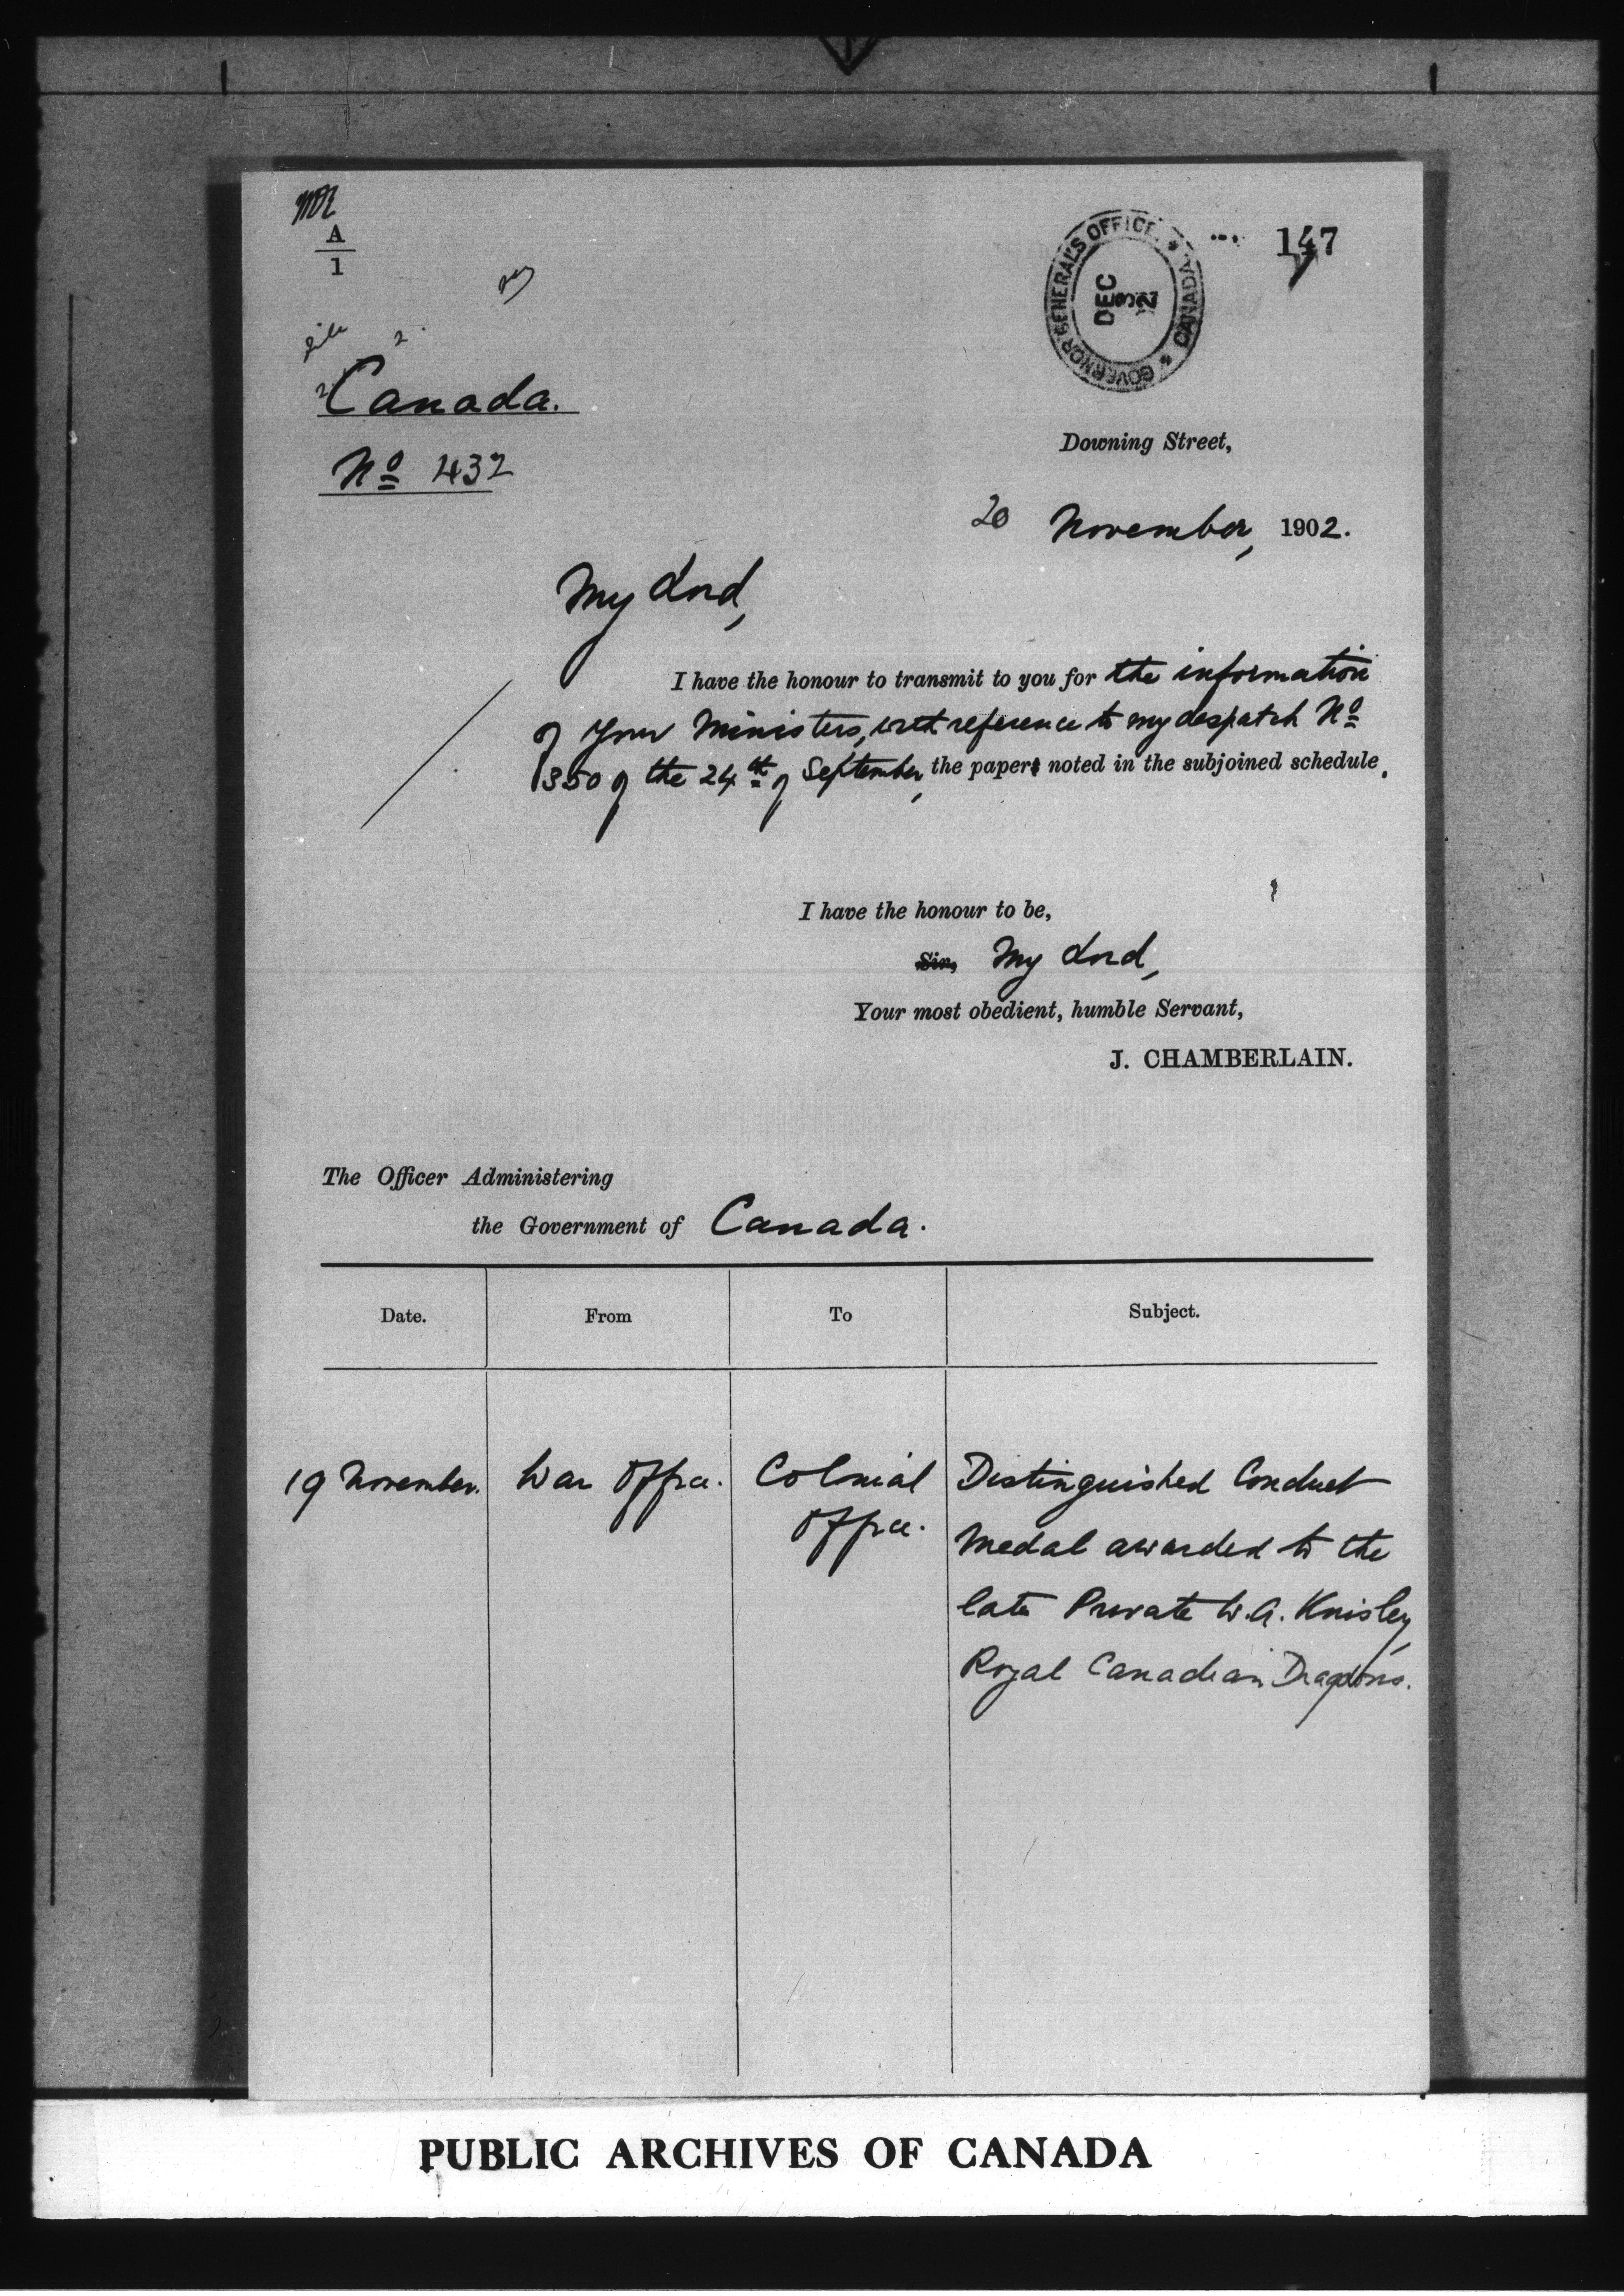 A
1
147
GOVERNOR GENERAL'S OFFICE
CANADA
DEC
3
file
Canada.
Nº 432
Downing Street,
20 November, 1902.
My Lord,
I have the honour to transmit to you for the information
of Your Ministers, with reference to my despatch Nº
350 of the 24th of September, the paper noted in the subjoined schedule.
I have the honour to be,
Sir, My Lord,
Your most obedient, humble Servant,
J. CHAMBERLAIN.
The Officer Administering
the Government of Canada.
Date. From To Subject.
19 November. War Office. Colonial Office. Distinguished Conduct
Medal awarded to the
late Private W.A. Knisley,
Royal Canadian Dragoons.
PUBLIC ARCHIVES OF CANADA